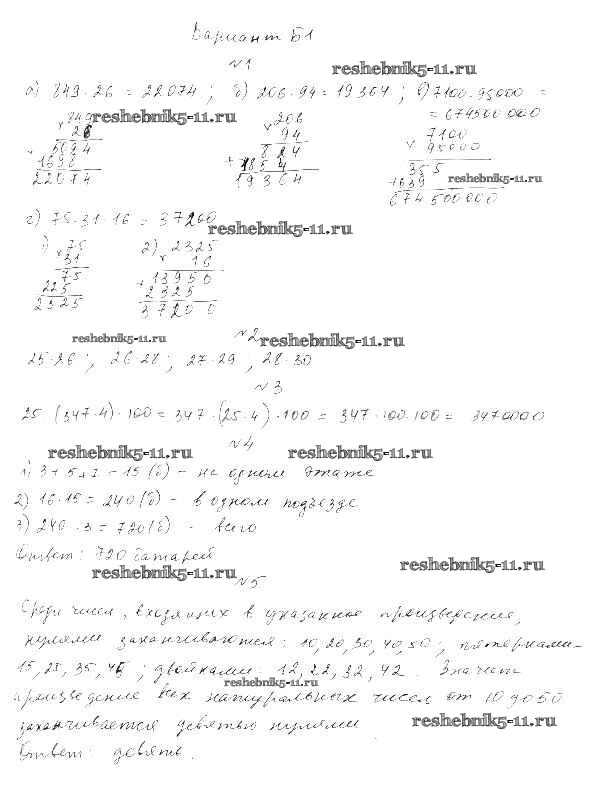 Вариант Б1
№1
reshebnik5-11.ru
а) 849·26 = 22074; б) 206·94 = 19364; в) 7100·95000 =
= 674500000
reshebnik5-11.ru
849
× 26
5094
+ 1698
22074
206
× 94
824
+ 1854
19364
7100
× 95000
355
+ 639
674500000
reshebnik5-11.ru
г) 75·31·16 = 37200
reshebnik5-11.ru
1) × 75
31
75
225
2325
2) 2325
× 16
+ 13950
2325
37200
reshebnik5-11.ru
№2
reshebnik5-11.ru
25·26; 26·28; 27·29, 28·30
№3
25·(347·4)·100 = 347·(25·4)·100 = 347·100·100 = 3470000
№4
reshebnik5-11.ru
reshebnik5-11.ru
1) 3+5+7 = 15 (б) - на одном этаже
2) 16·15 = 240 (б) - в одном подъезде
3) 240·3 = 720 (б) - всего
Ответ: 720 батарей
reshebnik5-11.ru
reshebnik5-11.ru
№5
Среди чисел, входящих в указанное произведение,
нулями заканчиваются: 10, 20, 30, 40, 50; пятерками -
15, 25, 35, 45; двойками: 12, 22, 32, 42. Значит
reshebnik5-11.ru
произведение всех натуральных чисел от 10 до 50
заканчивается девятью нулями
reshebnik5-11.ru
Ответ: девять.